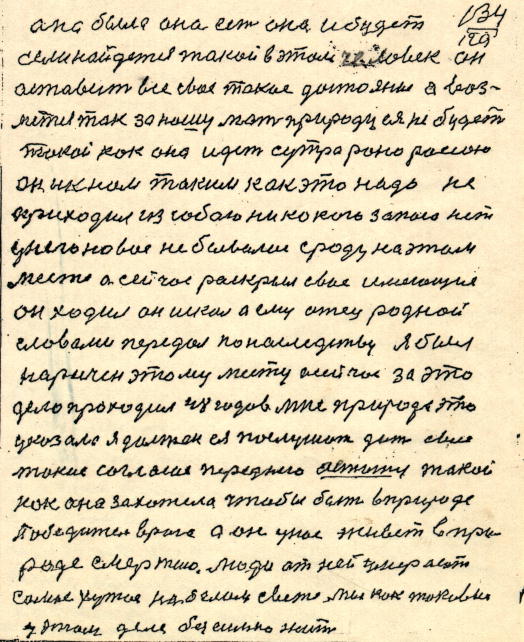 134
ана была она есть она и будет
сели найдется такой в этом человек он
аставит все свое такое достояние а воз-
метця так за нашу мать природу ея не будет
такой как она идет с утра рано расою
он и к ном таким как это надо не
приходил из собаю никокого запасо нет
у него новое не бывалое сроду на этам
месте а сейчас раскрыл свое имеющие
он ходил он искал а ему отец родной
словами передал по наследству Я был
наричен этому месту а сейчас за это
дело проходил 48 годов мне природа это
указала я должен ея послушат дат свое
такое согласие переднего такой
как она захотела чтобы быт в природе
Победител врага а он у нас живет в при
роде смертю. люди от ней умерают
самое хужое на белом свете мы как таковые
у этам деле безсильно жить